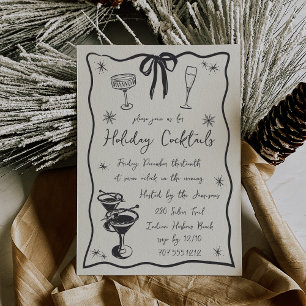 please join us for
Holiday Cocktails
Friday December thirteenth
at seven o'clock in the evening
Hosted by the Jeansons
280 Silver Trail
Indian Harbour Beach
rsvp by 12/10
707.555.1212